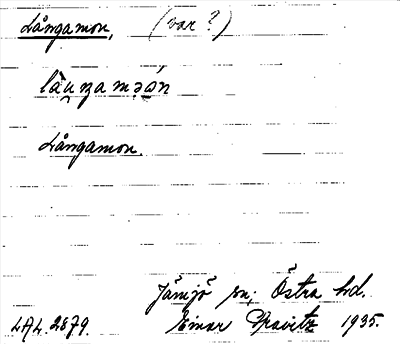 Långamon, (var?)
Långamon.
Jämjö sn; Östra hd.
LAL. 2879. Einar Gravitz 1935.